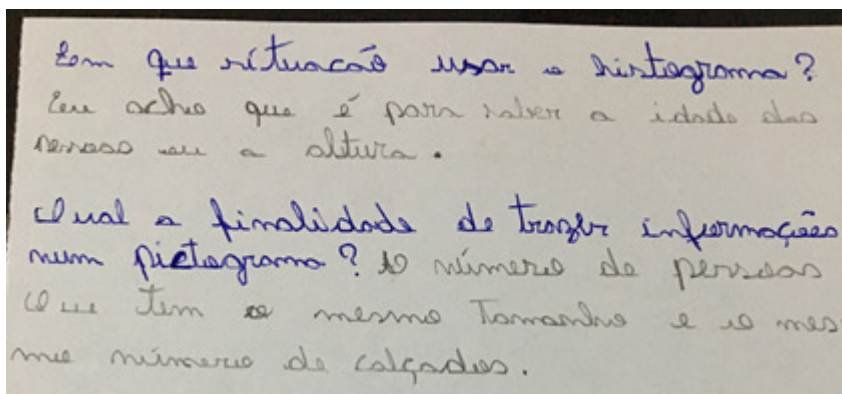 Em que situacaõ usar o histograma?
Eu acho que é para saber a idade das
pessoas ou a altura.
Qual a finalidade de trazer informações
num pictograma? O número de pessoas
que tem o mesmo tamanho e o mes-
mo número de calçados.